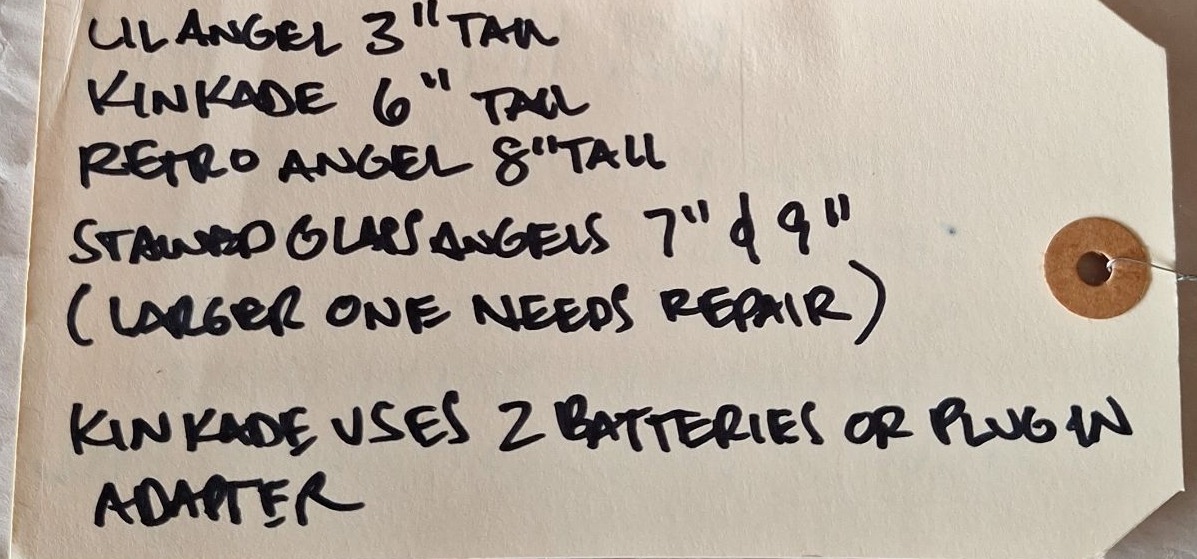 LIL ANGEL 3" TALL
KINKADE 6" TALL
RETRO ANGEL 8" TALL
STAINED GLASS ANGELS 7" & 9"
(LARGER ONE NEEDS REPAIR)
KINKADE USES 2 BATTERIES OR PLUG IN
ADAPTER